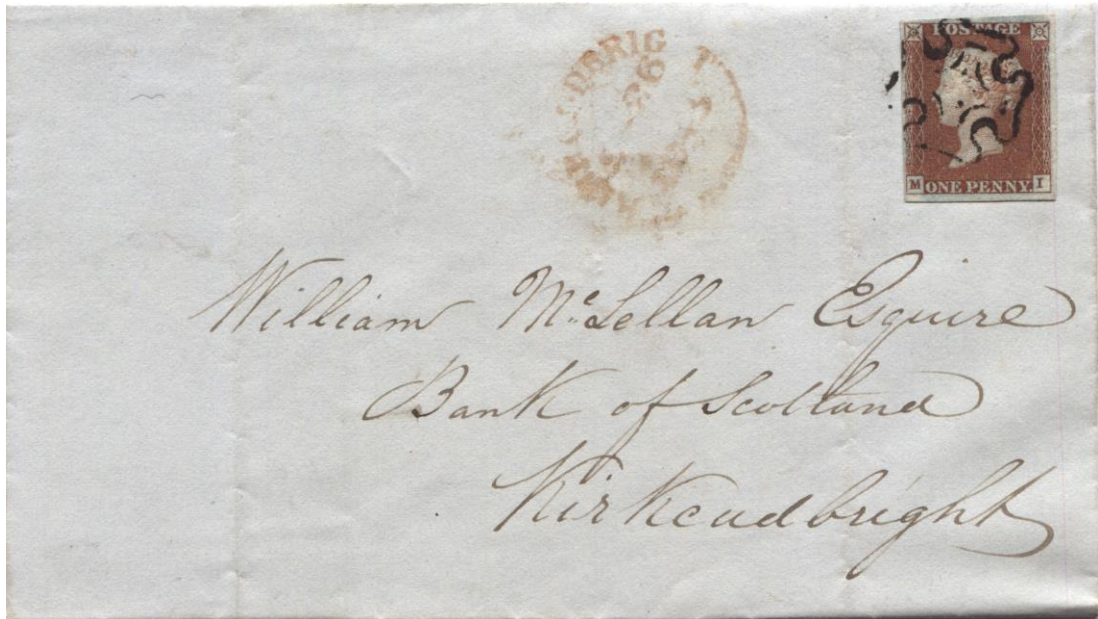 POSTAGE
M ONE PENNY I
26
William Mc Lellan Esquire
Bank of Scotland
Kirkcudbright